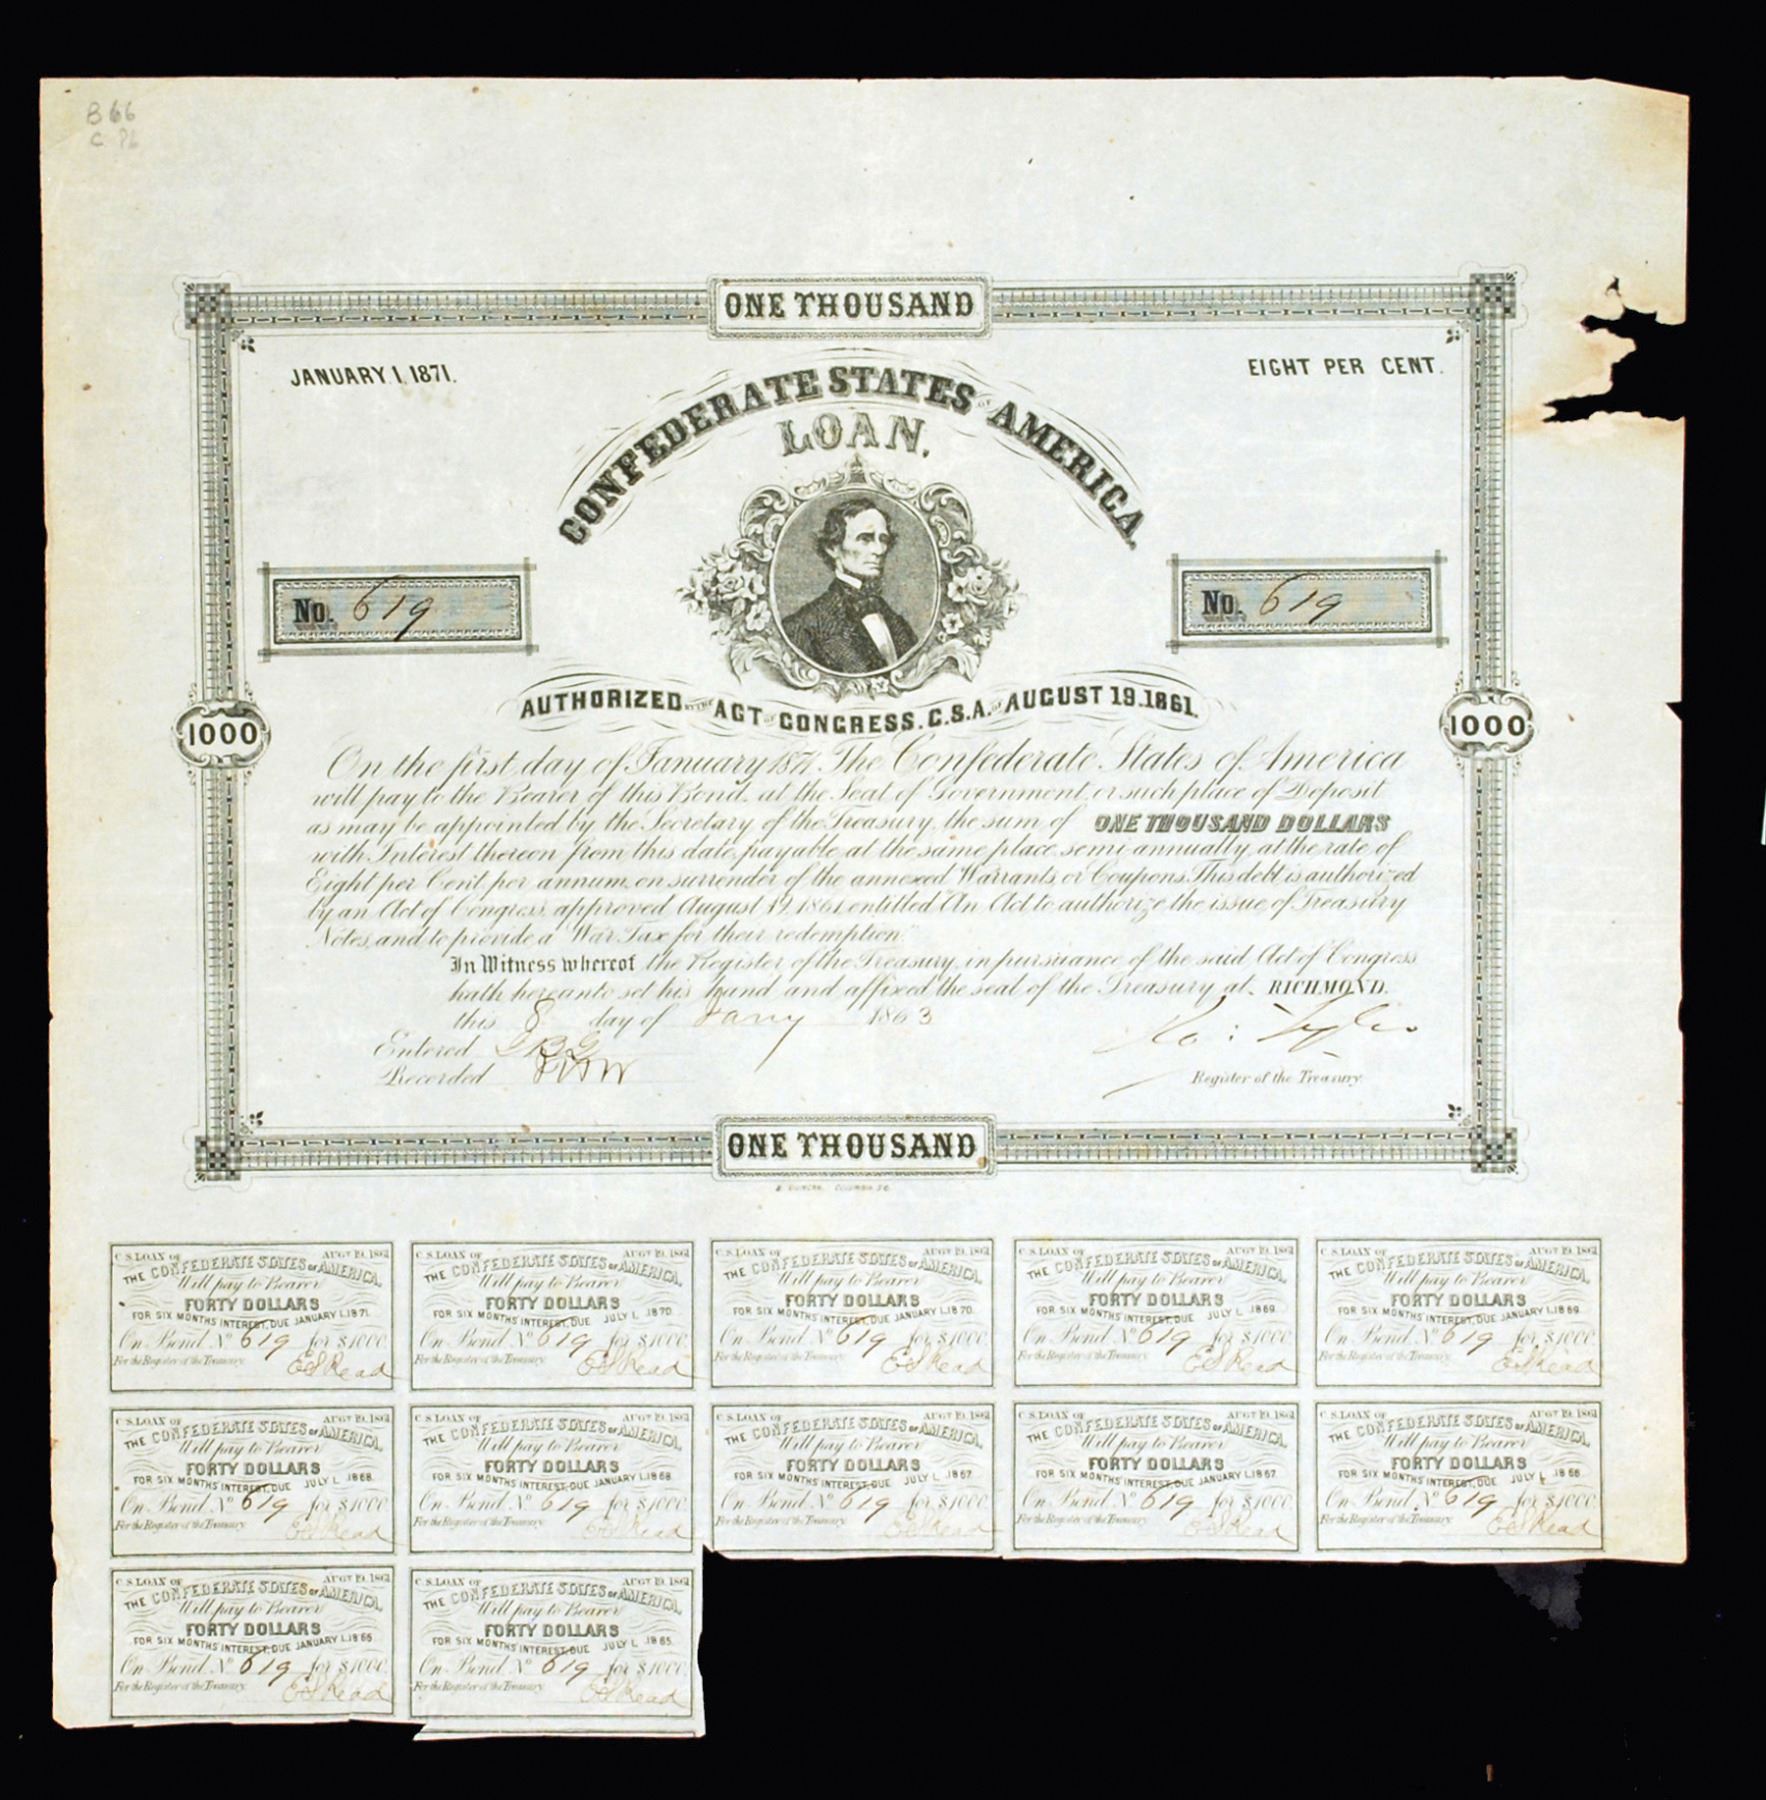 B 66
C 86
ONE THOUSAND
JANUARY 1, 1871.
EIGHT PER CENT.
CONFEDERATE STATES OF AMERICA.
LOAN,
No. 619
No. 619
AUTHORIZED BY THE ACT OF CONGRESS. C.S.A. OF AUGUST 19. 1861.
1000
1000
On the first day of January 1871. The Confederate States of America
will pay to the Bearer of this Bond, at the Seat of Government, or such place of Deposit
as may be appointed by the Secretary of the Treasury, the sum of ONE THOUSAND DOLLARS
with Interest thereon from this date, payable at the same place, semi-annually, at the rate of
Eight per Cent, per annum, on surrender of the annexed Warrants, or Coupons. This debt is authorized
by an Act of Congress, approved August 19, 1861, entitled "An Act to authorize the issue of Treasury
Notes, and to provide a War Tax for their redemption."
In Witness whereof the Register of the Treasury, in pursuance of the said Act of Congress
hath hereunto set his hand and affixed the seal of the Treasury at RICHMOND.
this 8 day of Jany 1863
Entered G B G
Recorded
Ro: Tyler
Register of the Treasury.
ONE THOUSAND
B. DUNCAN. COLUMBIA S.C.
C. S. LOAN OF AUGT 19. 1861
THE CONFEDERATE STATES OF AMERICA.
Will pay to Bearer
FORTY DOLLARS
FOR SIX MONTHS INTEREST, DUE JANUARY 1. 1871.
On Bond No 619 for $1000.
For the Register of the Treasury. E S Read
C. S. LOAN OF AUGT 19. 1861
THE CONFEDERATE STATES OF AMERICA.
Will pay to Bearer
FORTY DOLLARS
FOR SIX MONTHS INTEREST, DUE JULY 1. 1870.
On Bond No 619 for $1000.
For the Register of the Treasury. E S Read
C. S. LOAN OF AUGT 19. 1861
THE CONFEDERATE STATES OF AMERICA.
Will pay to Bearer
FORTY DOLLARS
FOR SIX MONTHS INTEREST, DUE JANUARY 1. 1870.
On Bond No 619 for $1000.
For the Register of the Treasury. E S Read
C. S. LOAN OF AUGT 19. 1861
THE CONFEDERATE STATES OF AMERICA.
Will pay to Bearer
FORTY DOLLARS
FOR SIX MONTHS INTEREST, DUE JULY 1. 1869.
On Bond No 619 for $1000.
For the Register of the Treasury. E S Read
C. S. LOAN OF AUGT 19. 1861
THE CONFEDERATE STATES OF AMERICA.
Will pay to Bearer
FORTY DOLLARS
FOR SIX MONTHS INTEREST, DUE JANUARY 1. 1869.
On Bond No 619 for $1000.
For the Register of the Treasury. E S Read
C. S. LOAN OF AUGT 19. 1861
THE CONFEDERATE STATES OF AMERICA.
Will pay to Bearer
FORTY DOLLARS
FOR SIX MONTHS INTEREST, DUE JULY 1. 1868.
On Bond No 619 for $1000.
For the Register of the Treasury. E S Read
C. S. LOAN OF AUGT 19. 1861
THE CONFEDERATE STATES OF AMERICA.
Will pay to Bearer
FORTY DOLLARS
FOR SIX MONTHS INTEREST, DUE JANUARY 1. 1868.
On Bond No 619 for $1000.
For the Register of the Treasury. E S Read
C. S. LOAN OF AUGT 19. 1861
THE CONFEDERATE STATES OF AMERICA.
Will pay to Bearer
FORTY DOLLARS
FOR SIX MONTHS INTEREST, DUE JULY 1. 1867.
On Bond No 619 for $1000.
For the Register of the Treasury. E S Read
C. S. LOAN OF AUGT 19. 1861
THE CONFEDERATE STATES OF AMERICA.
Will pay to Bearer
FORTY DOLLARS
FOR SIX MONTHS INTEREST, DUE JANUARY 1. 1867.
On Bond No 619 for $1000.
For the Register of the Treasury. E S Read
C. S. LOAN OF AUGT 19. 1861
THE CONFEDERATE STATES OF AMERICA.
Will pay to Bearer
FORTY DOLLARS
FOR SIX MONTHS INTEREST, DUE JULY 1. 1866.
On Bond No 619 for $1000.
For the Register of the Treasury. E S Read
C. S. LOAN OF AUGT 19. 1861
THE CONFEDERATE STATES OF AMERICA.
Will pay to Bearer
FORTY DOLLARS
FOR SIX MONTHS INTEREST, DUE JANUARY 1. 1866.
On Bond No 619 for $1000.
For the Register of the Treasury. E S Read
C. S. LOAN OF AUGT 19. 1861
THE CONFEDERATE STATES OF AMERICA.
Will pay to Bearer
FORTY DOLLARS
FOR SIX MONTHS INTEREST, DUE JULY 1. 1865.
On Bond No 619 for $1000.
For the Register of the Treasury. E S Read